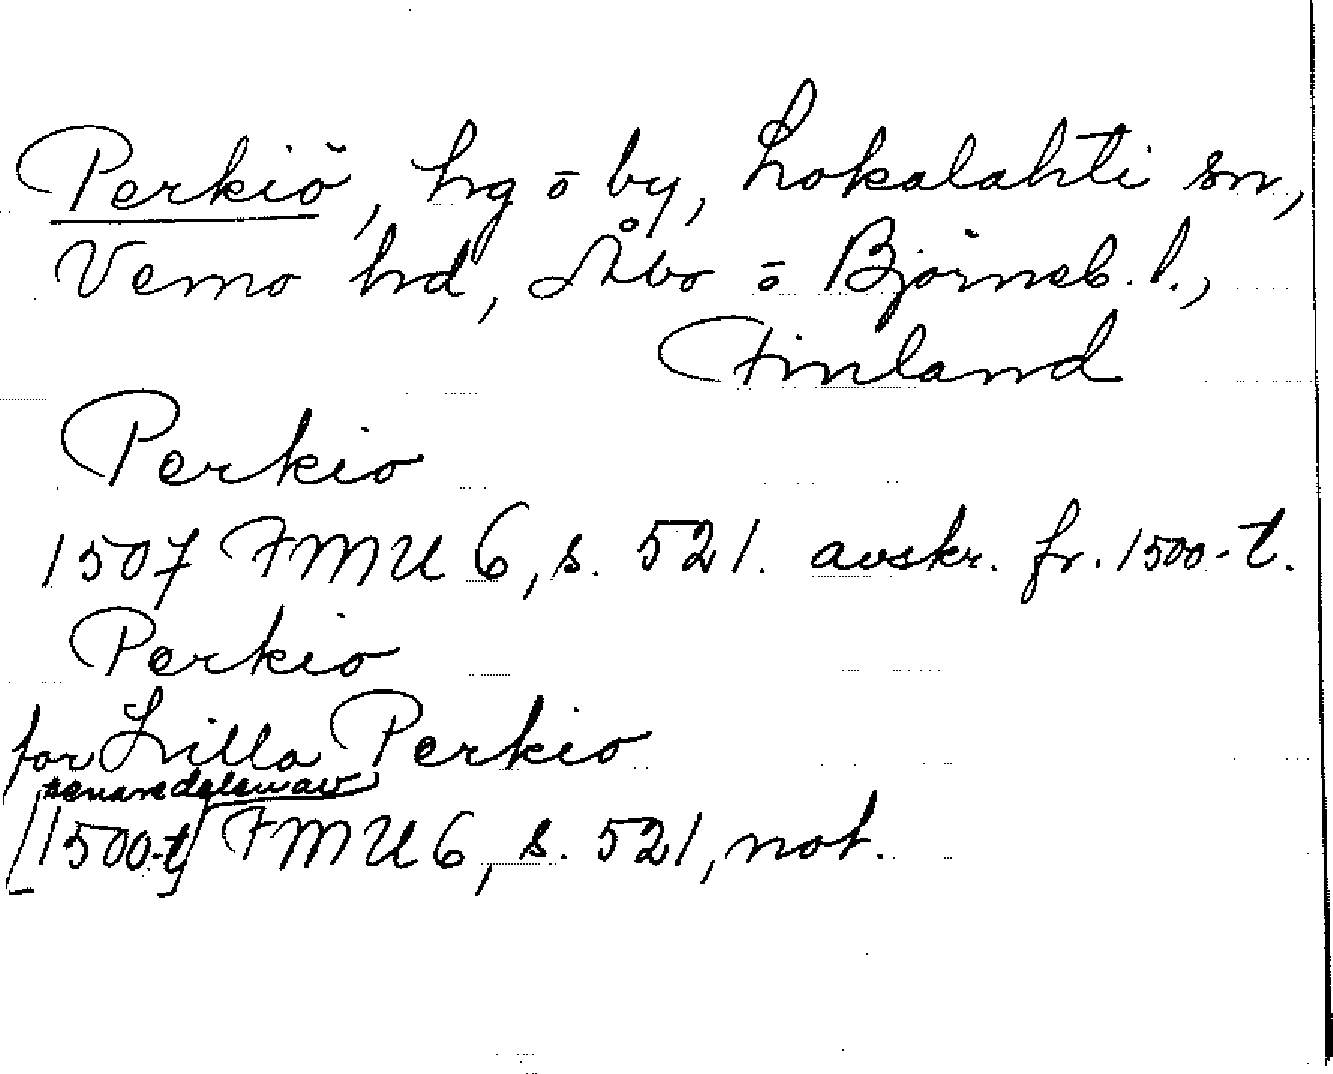 Perkiö, hg ō by, Lokalahti sn,
Vemo hd, Åbo ō Björneb. l.,
Finland
Perkio
1507 FMU 6, s. 521. avskr. fr. 1500-t.
Perkio
for Lilla Perkio
senare delen av
[1500-t] FMU 6, s. 521, not.